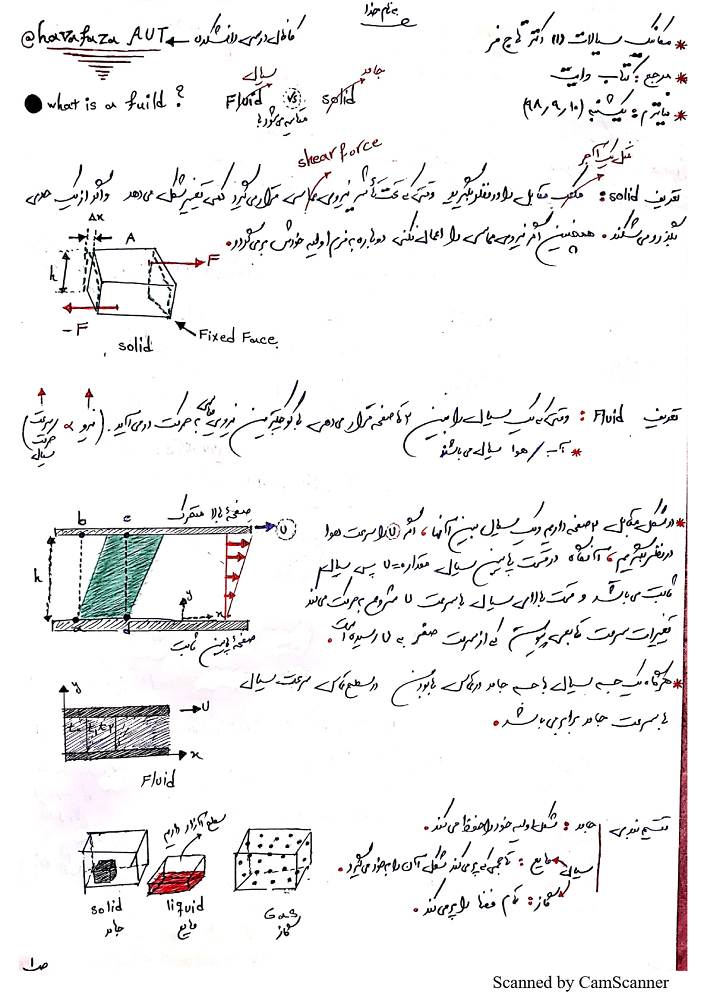 به نام خدا
* مکانیک سیالات (۱) دکتر تاج فر
کانال درسی دانشکده ← @havafaza_AUT
* مرجع : کتاب وایت
سیال جامد
● what is a fuild ? Fluid vs solid
مقایسه می‌شود با
* میانترم : یکشنبه (۹۸,۹,۱۰)
shear force
مثل یک آجر
تعریف solid : مکعب مقابل را در نظر بگیرید وقتی که تحت تأثیر نیروی مماسی قرار می‌گیرد کمی تغییر شکل می‌دهد و اگر از یک حدی
بگذرد می‌شکند . همچنین اگر نیروی مماسی را اعمال نکنی دوباره به فرم اولیه خودش برمی‌گردد.
Δx
A
h
F
-F
Fixed Face
solid
تعریف Fluid : وقتی که یک سیال را بین ۲ تا صفحه قرار می‌دهی با کوچکترین نیروی مماسی به حرکت در می‌آید . (نیرو ∝ سرعت حرکت سیال)
* آب / هوا سیال می‌باشند
* در شکل مقابل ۲ صفحه داریم و یک سیال بین آنها ، اگر U را سرعت هوا
در نظر بگیریم ، آنگاه در قسمت پایین سیال مقدار U=0 پس سیال
ثابت می‌باشد و قسمت بالای سیال با سرعت U شروع به حرکت می‌کند
تغییرات سرعت تابعی پیوسته که از سرعت صفر به U رسیده است .
صفحه بالا متحرک
b c
U
h
y
x
a d
صفحه پایین ثابت
* هرگاه یک جسم سیال با جسم جامد در تماس باشد در سطح تماس سرعت سیال
با سرعت جامد برابر می باشد .
y
U
t₀ t₁ t₂
x
Fluid
تقسیم بندی
جامد : شکل اولیه خود را حفظ می کند .
سیال
مایع : تا جایی که پر می کند شکل آن را به خود می گیرد .
گاز : تمام فضا را پر می کند .
سطح آزاد داریم
solid
جامد
liquid
مایع
Gas
گاز
ص۱
Scanned by CamScanner